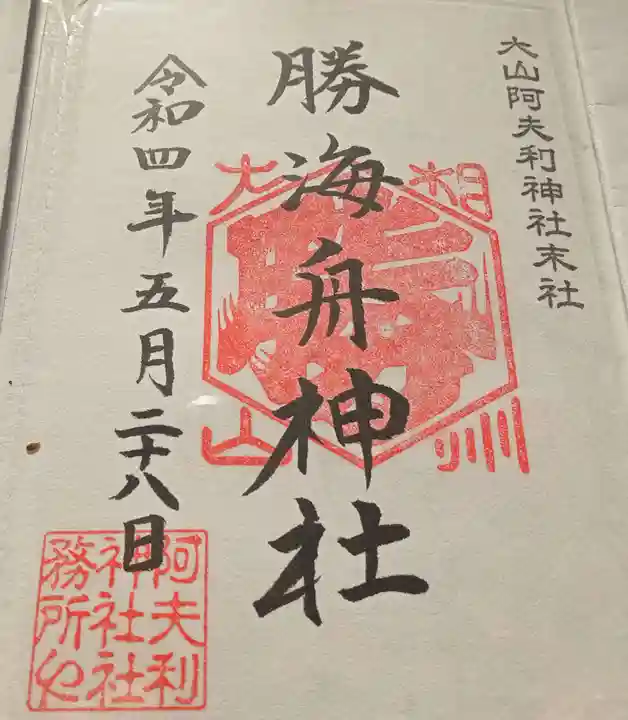 大山阿夫利神社末社
勝海舟神社
令和四年五月二十八日
相州
大山
阿夫利
神社社
務所之